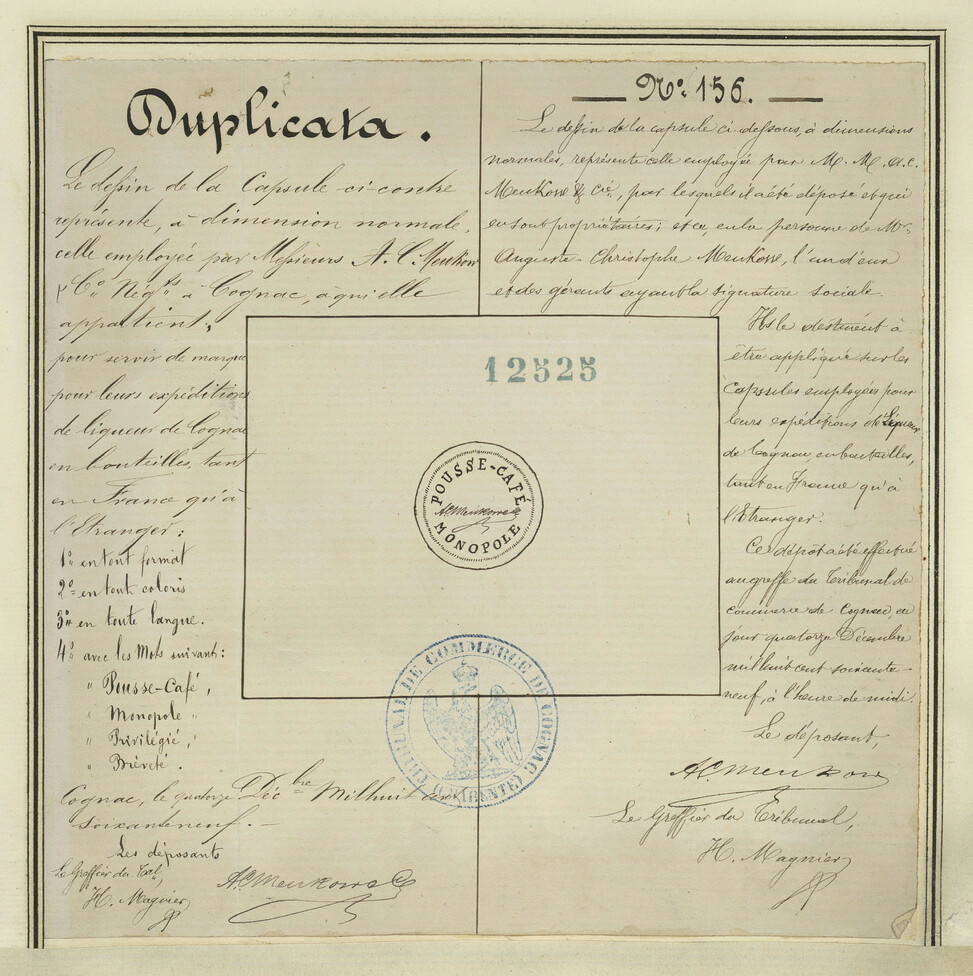 Duplicata.
Le dessin de la Capsule ci-contre
représente, à dimension normale,
celle employée par Messieurs A. C. Meukow
& Co Négts à Cognac, à qui elle
appartient;
pour servir de marque
pour leurs expéditions
de liqueur de Cognac
en bouteilles, tant
en France qu'à
l'Etranger:
1° en tout format
2° en tout coloris
3° en toute langue.
4° avec les Mots suivant:
" Pousse-Café,
" Monopole "
" Privilégié, "
" Bréveté.
Cognac, le quatorze Décbre Milhuit cent
soixanteneuf.
Les déposants
Le Greffier du Tal,
H. Magnier
A. C. Meukow & C
N° 156.
Le dessin de la capsule ci-dessous, à dimensions
normales, représente celle employée par M. M. A. C.
Meukow & Cie, par lesquels il a été déposé et qui
en sont propriétaires; et ce, en la personne de Mr
Auguste-Christophe Meukow, l'un d'eux
et des gérants ayant la signature sociale.
Ils le destinent à
être appliqué sur les
Capsules employées pour
leurs expéditions de Liqueur
de Cognac en bouteilles,
tant en France qu'à
l'Etranger.
Ce dépôt a été effectué
au greffe du Tribunal de
commerce de Cognac, ce
jour quatorze Décembre
mil huit cent soixante-
neuf, à l'heure de midi.
Le déposant,
A. C. Meukow
Le Greffier du Tribunal,
H. Magnier
12525
POUSSE-CAFÉ
A. C. Meukow & C
MONOPOLE
TRIBUNAL DE COMMERCE DE COGNAC
(CHARENTE)